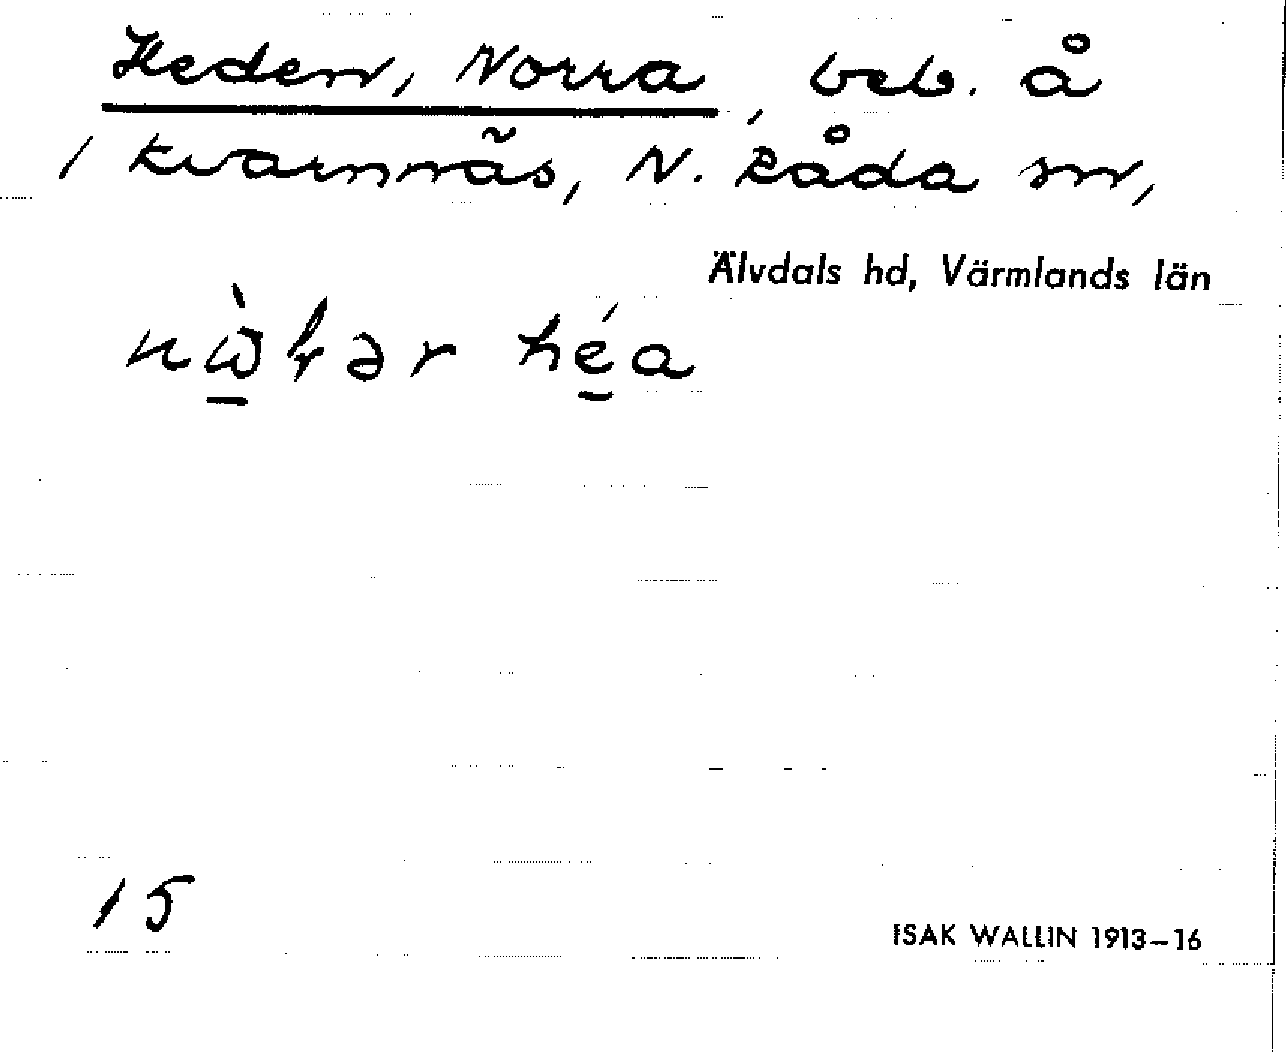 Heden, Norra, beb. å
1 Kvarnnäs, N. Råda sn,
Älvdals hd, Värmlands län
héa
15
ISAK WALLIN 1913–16